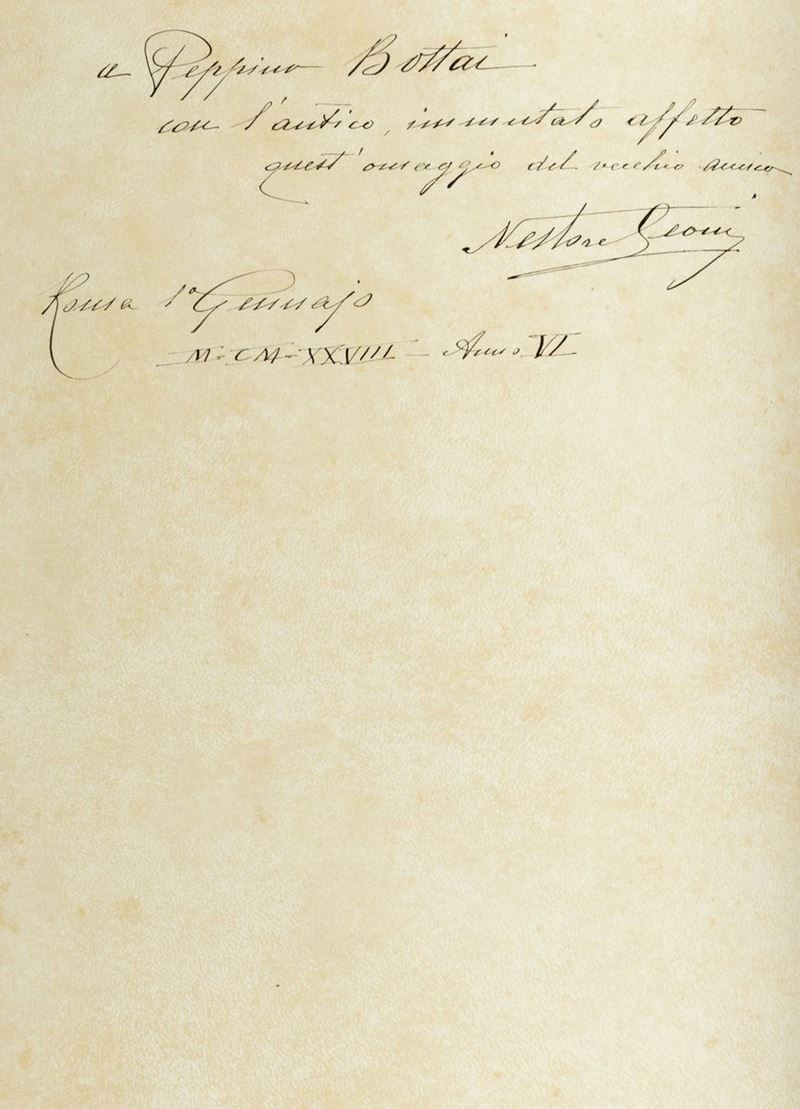 a Peppino Bottai
con l'antico, immutato affetto
quest'omaggio del vecchio amico
Nestore Leoni
Roma 1º Gennajo
M·CM·XXVIII - Anno VI